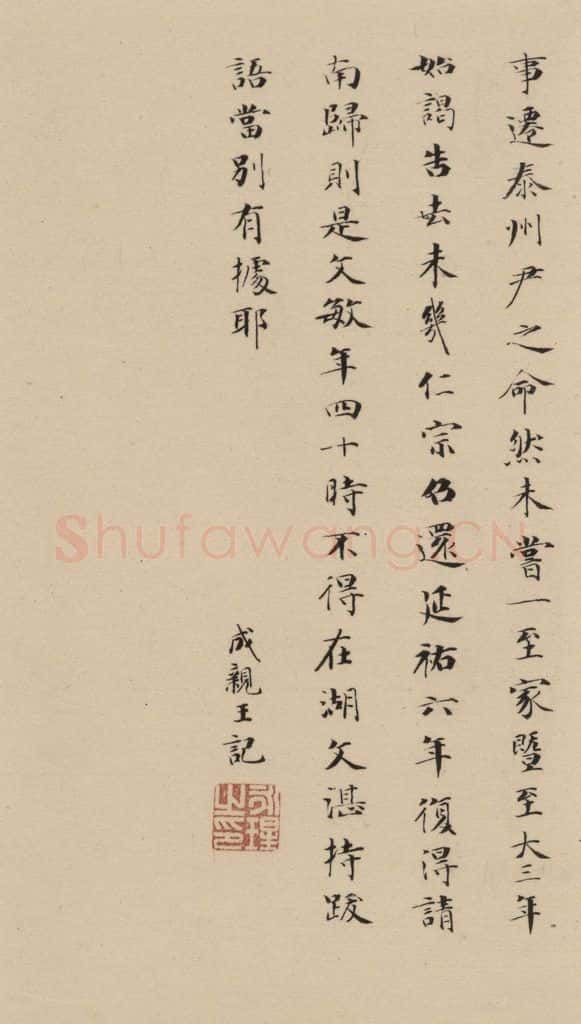 事遷泰州尹之命然未嘗一至家暨至大三年
始謁告去未幾仁宗仍還延祐六年復得請
南歸則是文敏年四十時不得在湖文湛持跋
語當別有據耶
成親王記
永瑆之印
Shufawang.CN